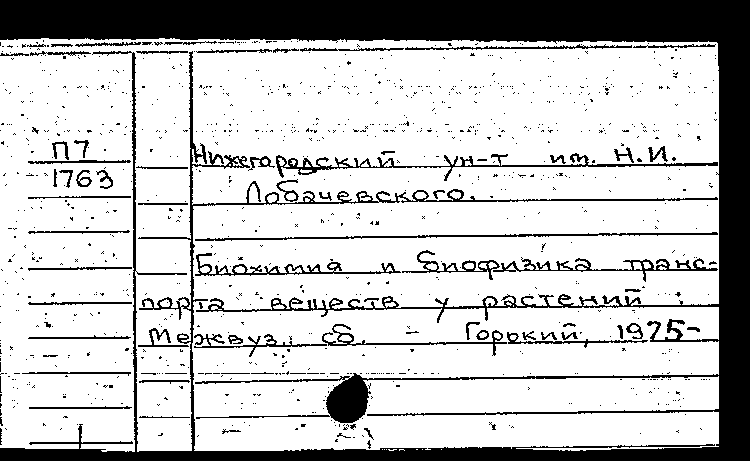 П7
1763
Нижегородский ун-т им. Н.И.
Лобачевского.
Биохимия и биофизика транс-
порта веществ у растений :
Межвуз. сб. - Горький, 1975-